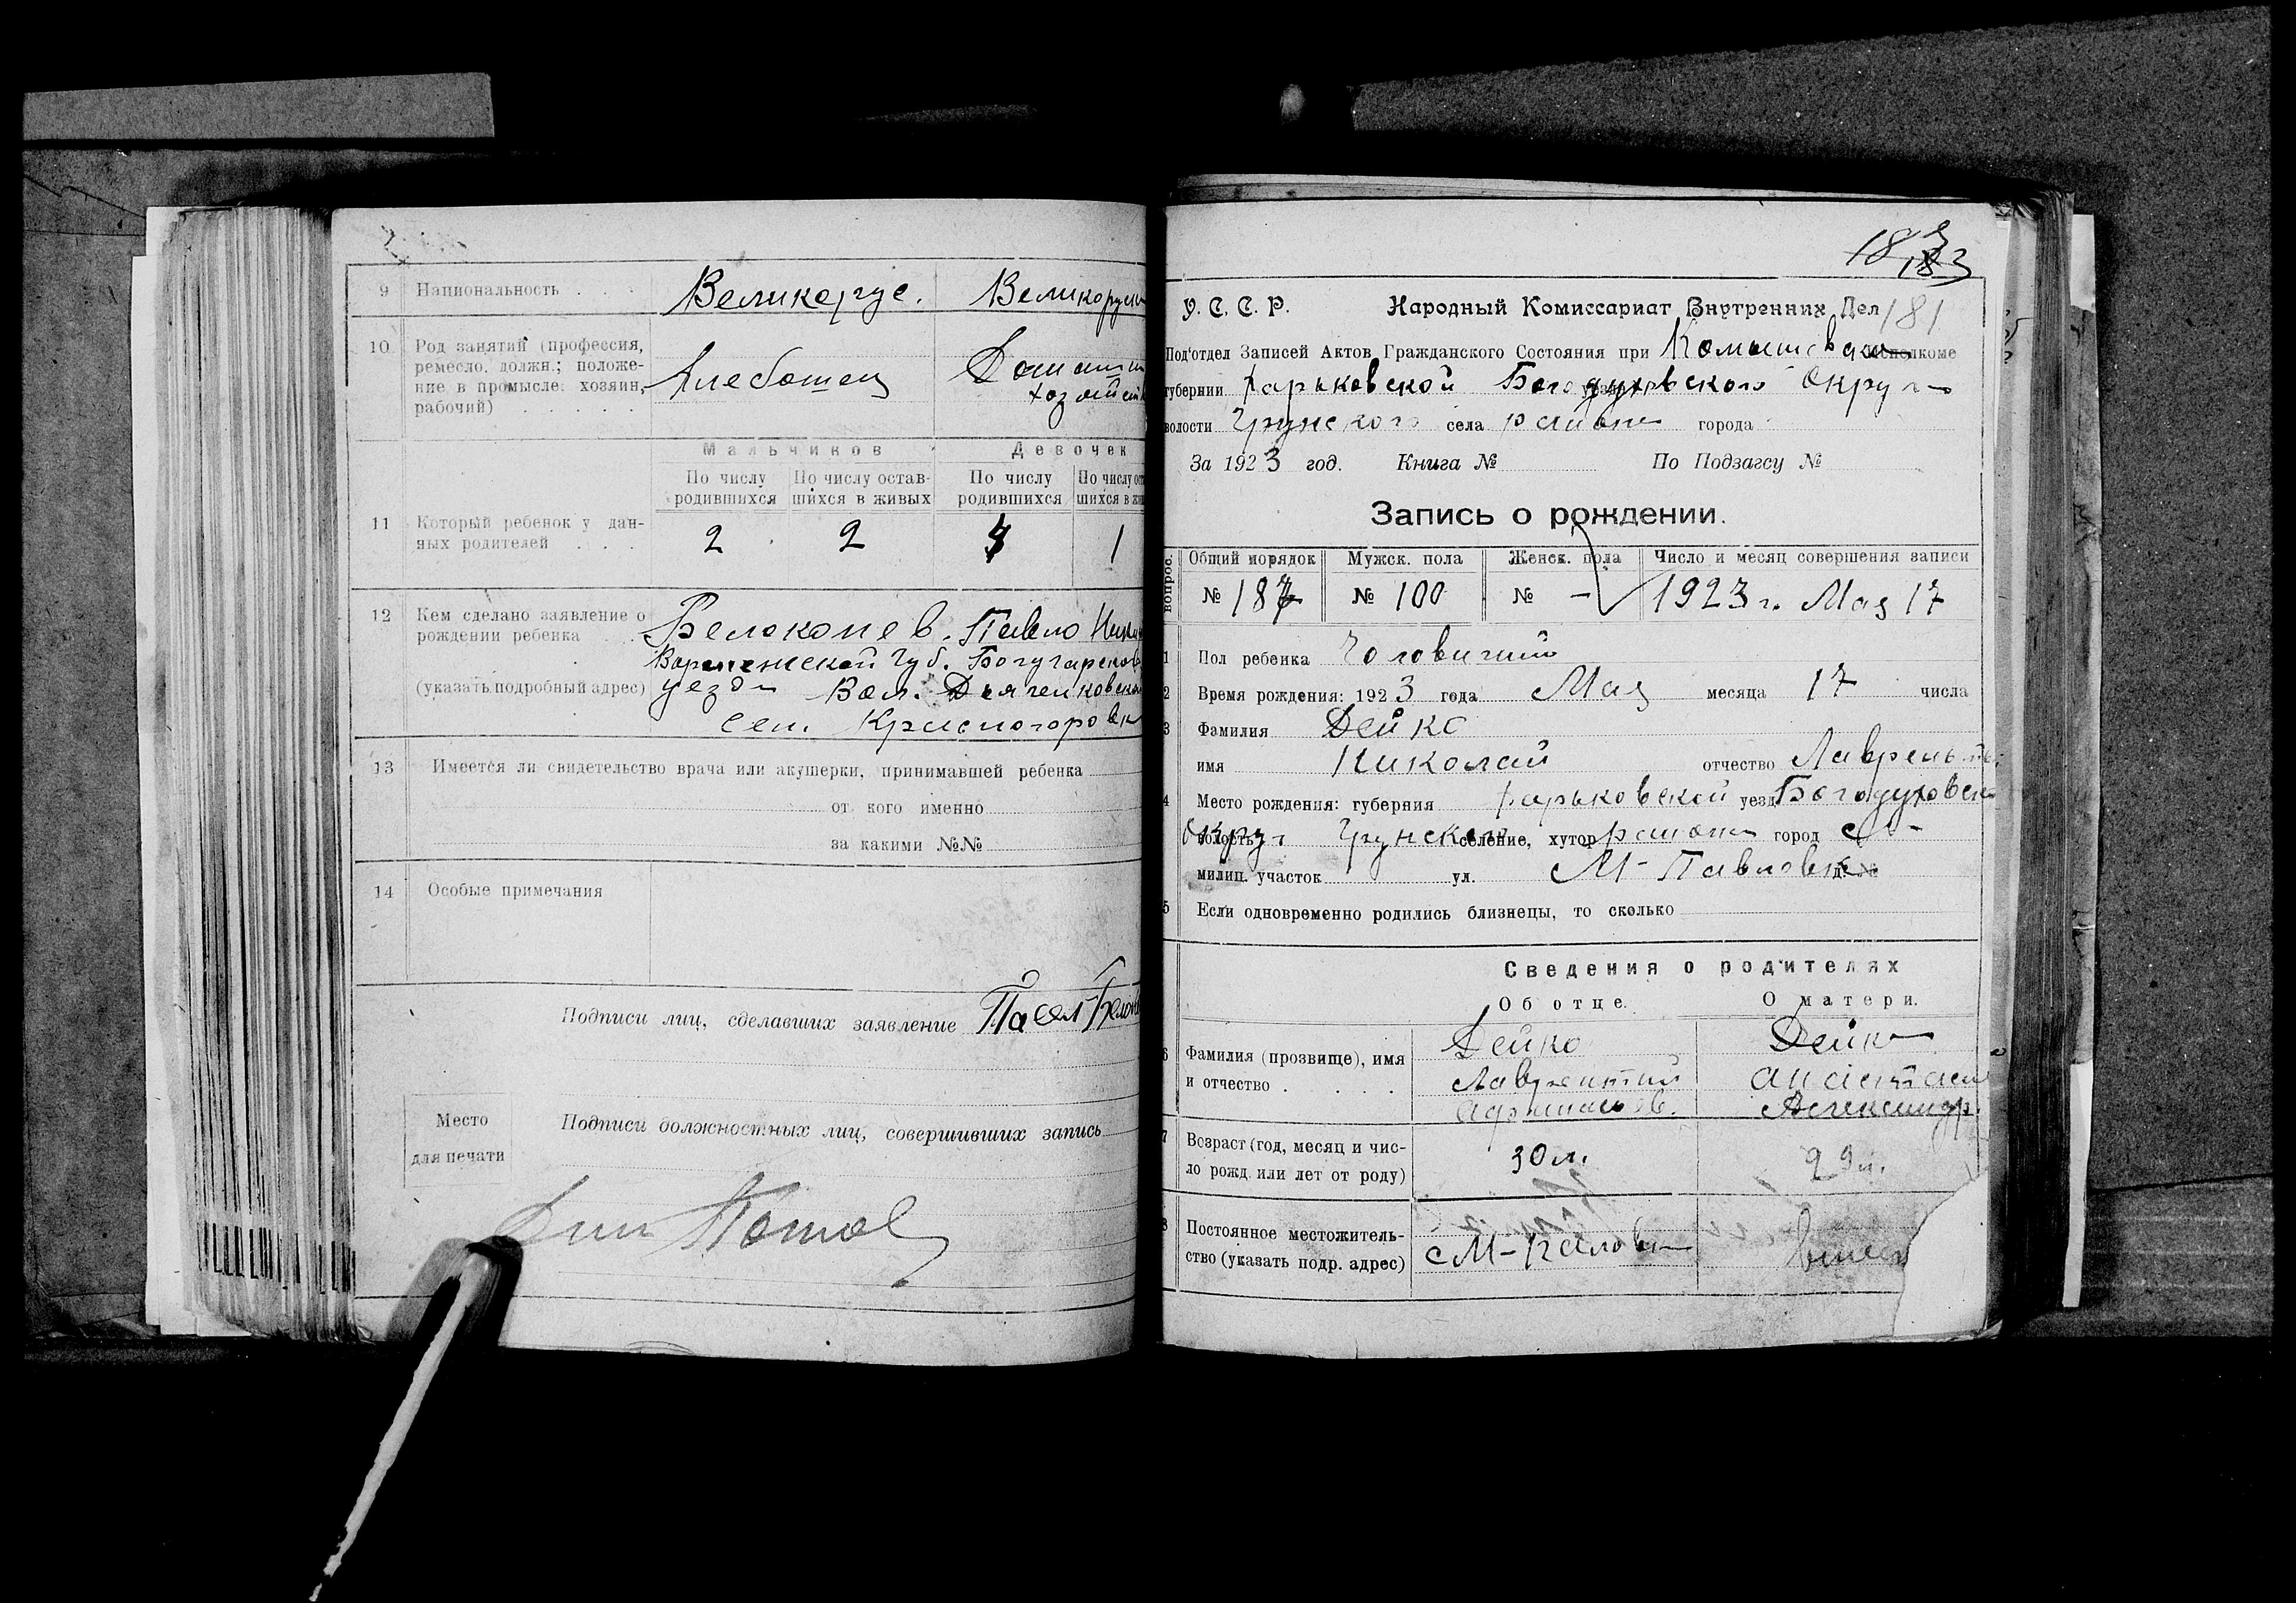 9 Национальность Великорус. Великорусск
10 Род занятий (профессия,
ремесло, должн.; положе-
ние в промысле: хозяин,
рабочий)
Хлебопашец
Мальчиков Девочек
По числу родившихся
По числу остав-
шихся в живых
По числу родившихся
11 Который ребенок у дан-
ных родителей
2 2 1
12 Кем сделано заявление о
рождении ребенка
(указать подробный адрес)
Белоконев. Павло
Воронежской Губ. Богучарског
уезда Вол. Дьяченковской
Сел. Красногоровк
13 Имеется ли свидетельство врача или акушерки, принимавшей ребенка
от кого именно
за какими №№
14 Особые примечания
Подписи лиц, сделавших заявление Павел
Место
для печати
Подписи должностных лиц, совершивших запись
183
181
У. С. С. Р. Народный Комиссариат Внутренних Дел
Под'отдел Записей Актов Гражданского Состояния при
губернии Харьковской Богодуховского Округа
волости Грунского села района города
За 1923 год. Книга № По Подзагсу №
Запись о рождении.
Общий порядок Мужск. пола Женск. пола Число и месяц совершения записи
№ 187 № 100 № - 1923 г. Мая 17
1 Пол ребенка Чоловичий
2 Время рождения: 1923 года Мая месяца 17 числа
3 Фамилия Дейко
имя Николай отчество
4 Место рождения: губерния Харьковской уезд Богодуховск
волость Округ Грунской селение, хутор района город
милиц. участок ул. М-Павловка
5 Если одновременно родились близнецы, то сколько
Сведения о родителях
Об отце. О матери.
6 Фамилия (прозвище), имя
и отчество
Дейко
Лаврентий
Дейко
Анастасия
Александр.
7 Возраст (год, месяц и чис-
ло рожд. или лет от роду)
30 л. 29 л.
8 Постоянное местожитель-
ство (указать подр. адрес)
с М-Павловка